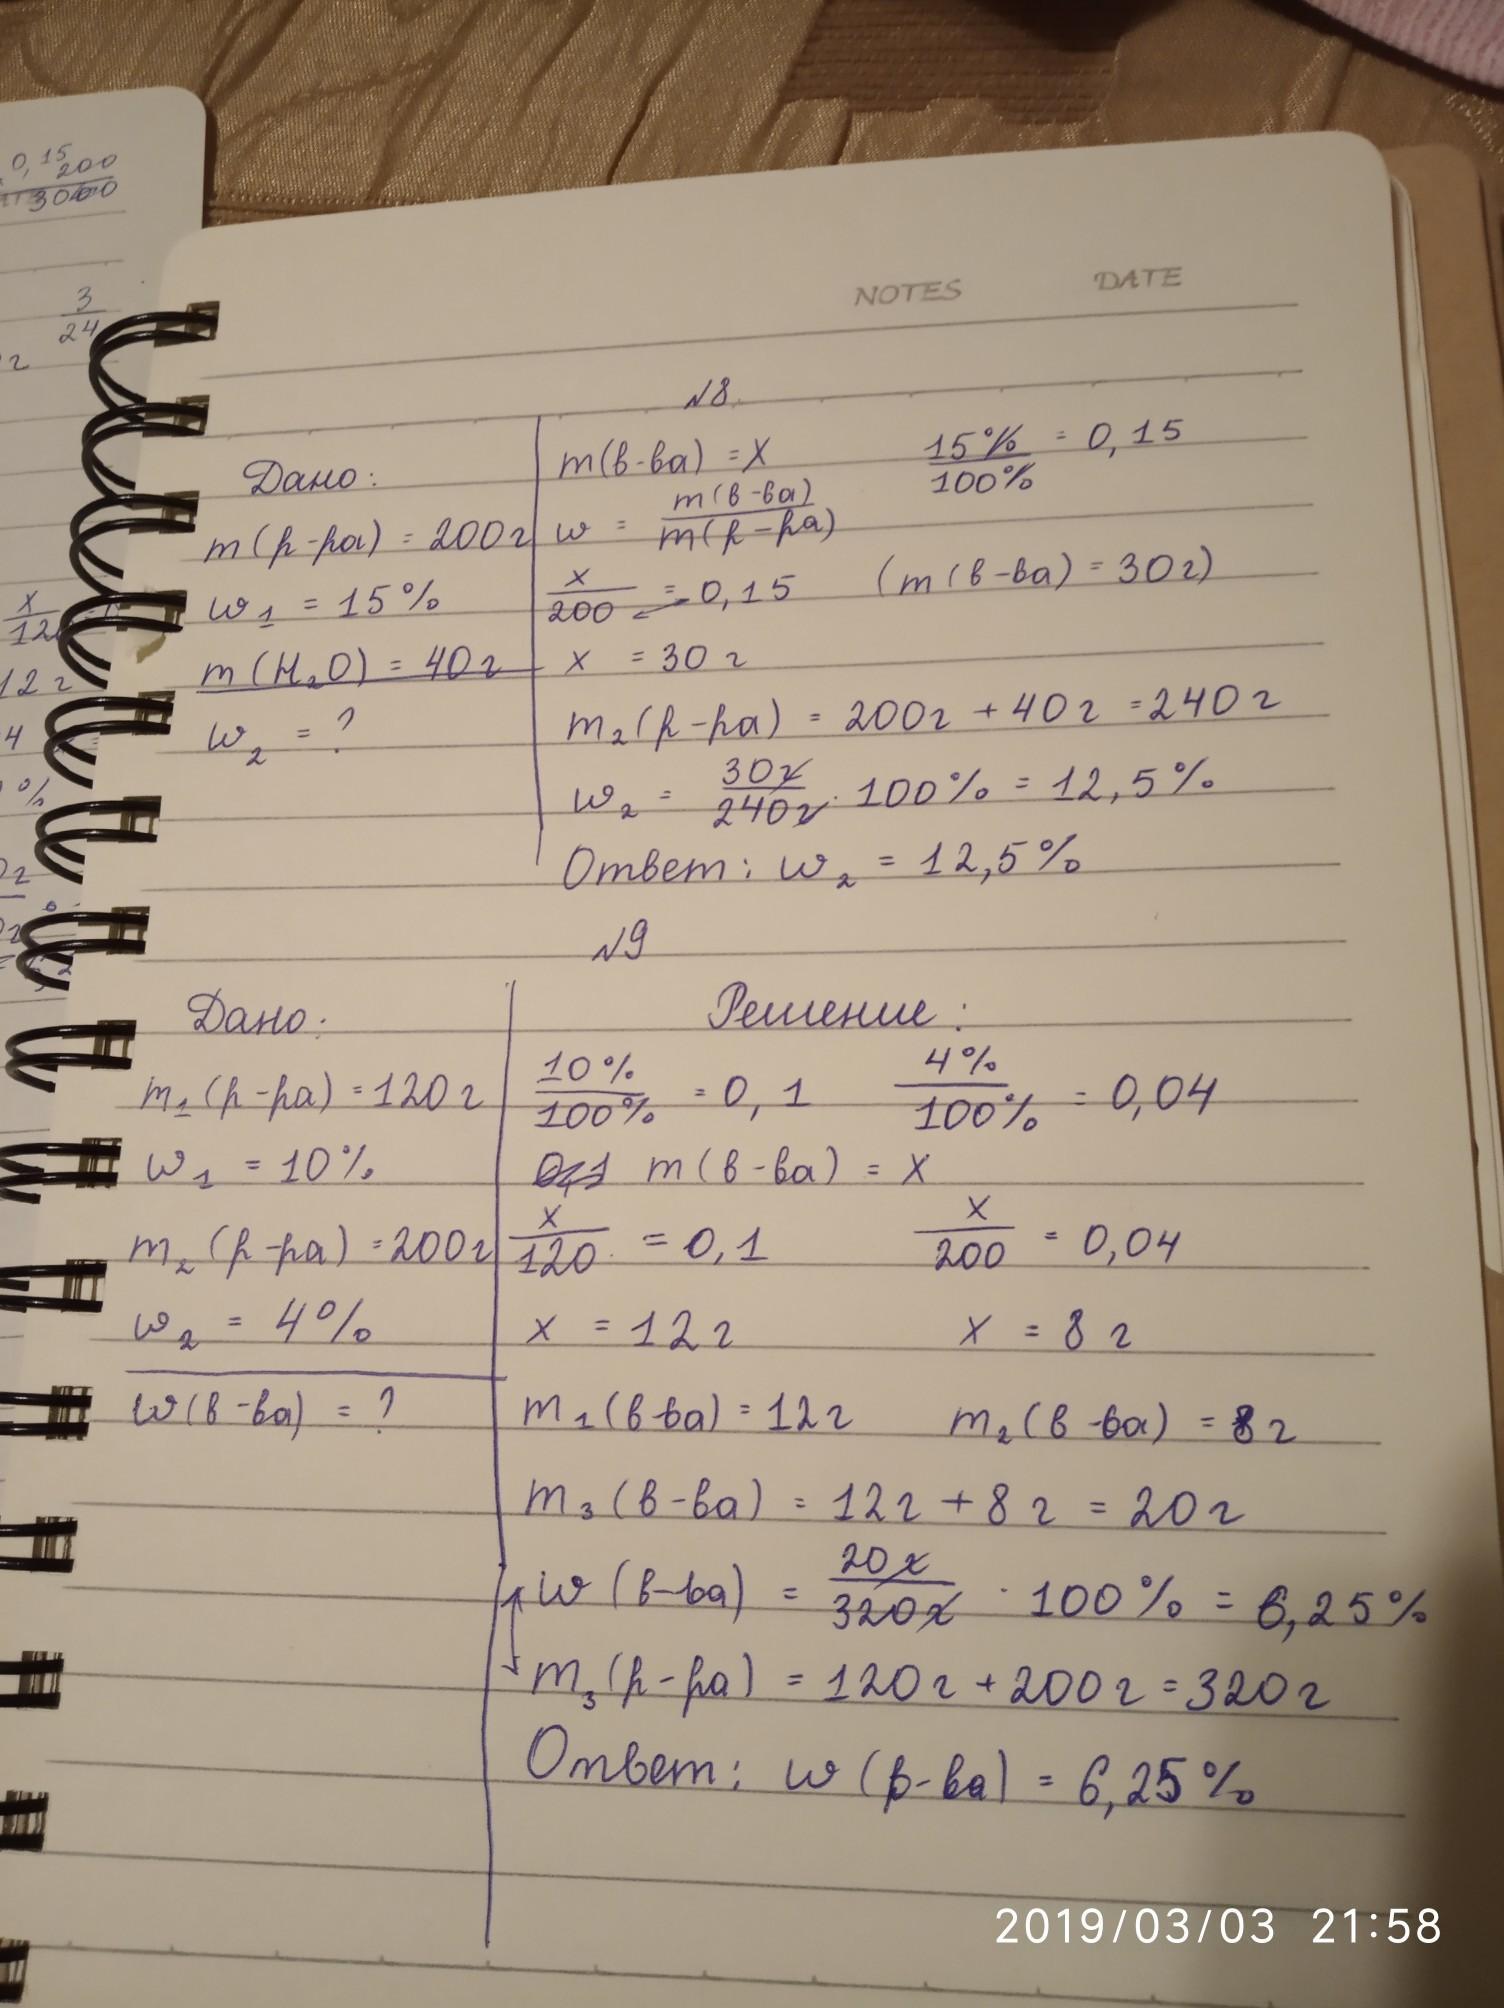 0,15
200
3000
3
24
г
x
12
12 г
4
%
NOTES DATE
№8.
Дано:
m(р-ра) = 200г
w₁ = 15%
m(H₂O) = 40г
w₂ = ?
m(в-ва) = X 15%/100% = 0,15
w = m(в-ва)/m(р-ра)
x/200 = 0,15 (m(в-ва) = 30г)
x = 30 г
m₂(р-ра) = 200г + 40г = 240г
w₂ = 30г/240г · 100% = 12,5%
Ответ: w₂ = 12,5%
№9
Дано:
m₁(р-ра) = 120г
w₁ = 10%
m₂(р-ра) = 200г
w₂ = 4%
w(в-ва) = ?
Решение:
10%/100% = 0,1 4%/100% = 0,04
m(в-ва) = x
x/120 = 0,1 x/200 = 0,04
x = 12г x = 8 г
m₁(в-ва) = 12г m₂(в-ва) = 8г
m₃(в-ва) = 12г + 8г = 20г
w(в-ва) = 20г/320г · 100% = 6,25%
m₃(р-ра) = 120г + 200г = 320г
Ответ: w(в-ва) = 6,25%
2019/03/03 21:58